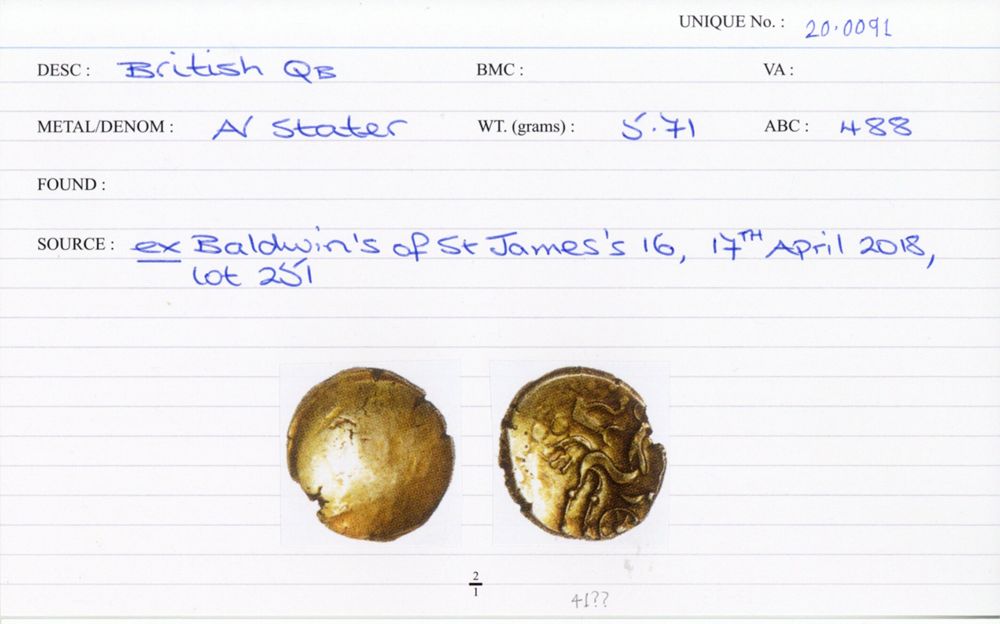 UNIQUE No. : 20.0091
DESC : British QB BMC : VA :
METAL/DENOM : AV Stater WT. (grams) : 5.71 ABC : 488
FOUND :
SOURCE : ex Baldwin's of St James's 16, 17TH April 2018,
lot 251
2/1
41??